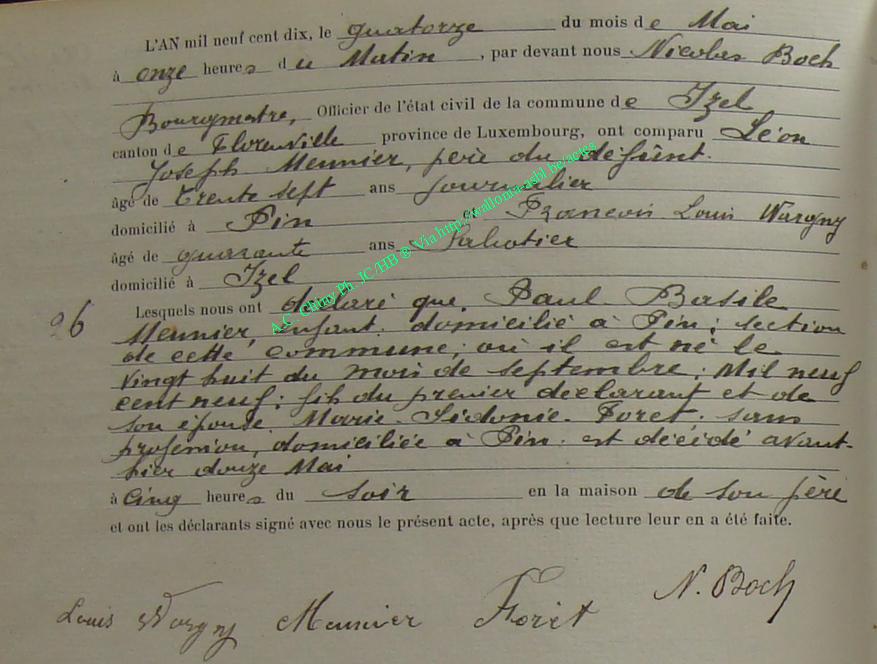 L'AN mil neuf cent dix, le quatorze du mois de Mai
à onze heures du Matin, par devant nous Nicolas Boch
Bourgmestre, Officier de l'état civil de la commune de Izel
canton de Florenville province de Luxembourg, ont comparu Léon
Joseph Meunier, père du défunt.
âgé de trente sept ans journalier
domicilié à Pin et François Louis Wargny
âgé de quarante ans Sabotier
domicilié à Izel
A.C. Chiny Ph. JC/HB ® Via http://wallonia-asbl.be/actes
Lesquels nous ont déclaré que Paul Basile
26
Meunier, enfant, domicilié à Pin; section
de cette commune; où il est né le
vingt huit du mois de septembre; Mil neuf
cent neuf; fils du premier déclarant et de
son épouse Marie Sidonie Foret; sans
profession, domiciliée à Pin. est décédé avant-
hier douze Mai
à cinq heures du soir en la maison de son père
et ont les déclarants signé avec nous le présent acte, après que lecture leur en a été faite.
Louis Wargny Meunier Foret N. Boch